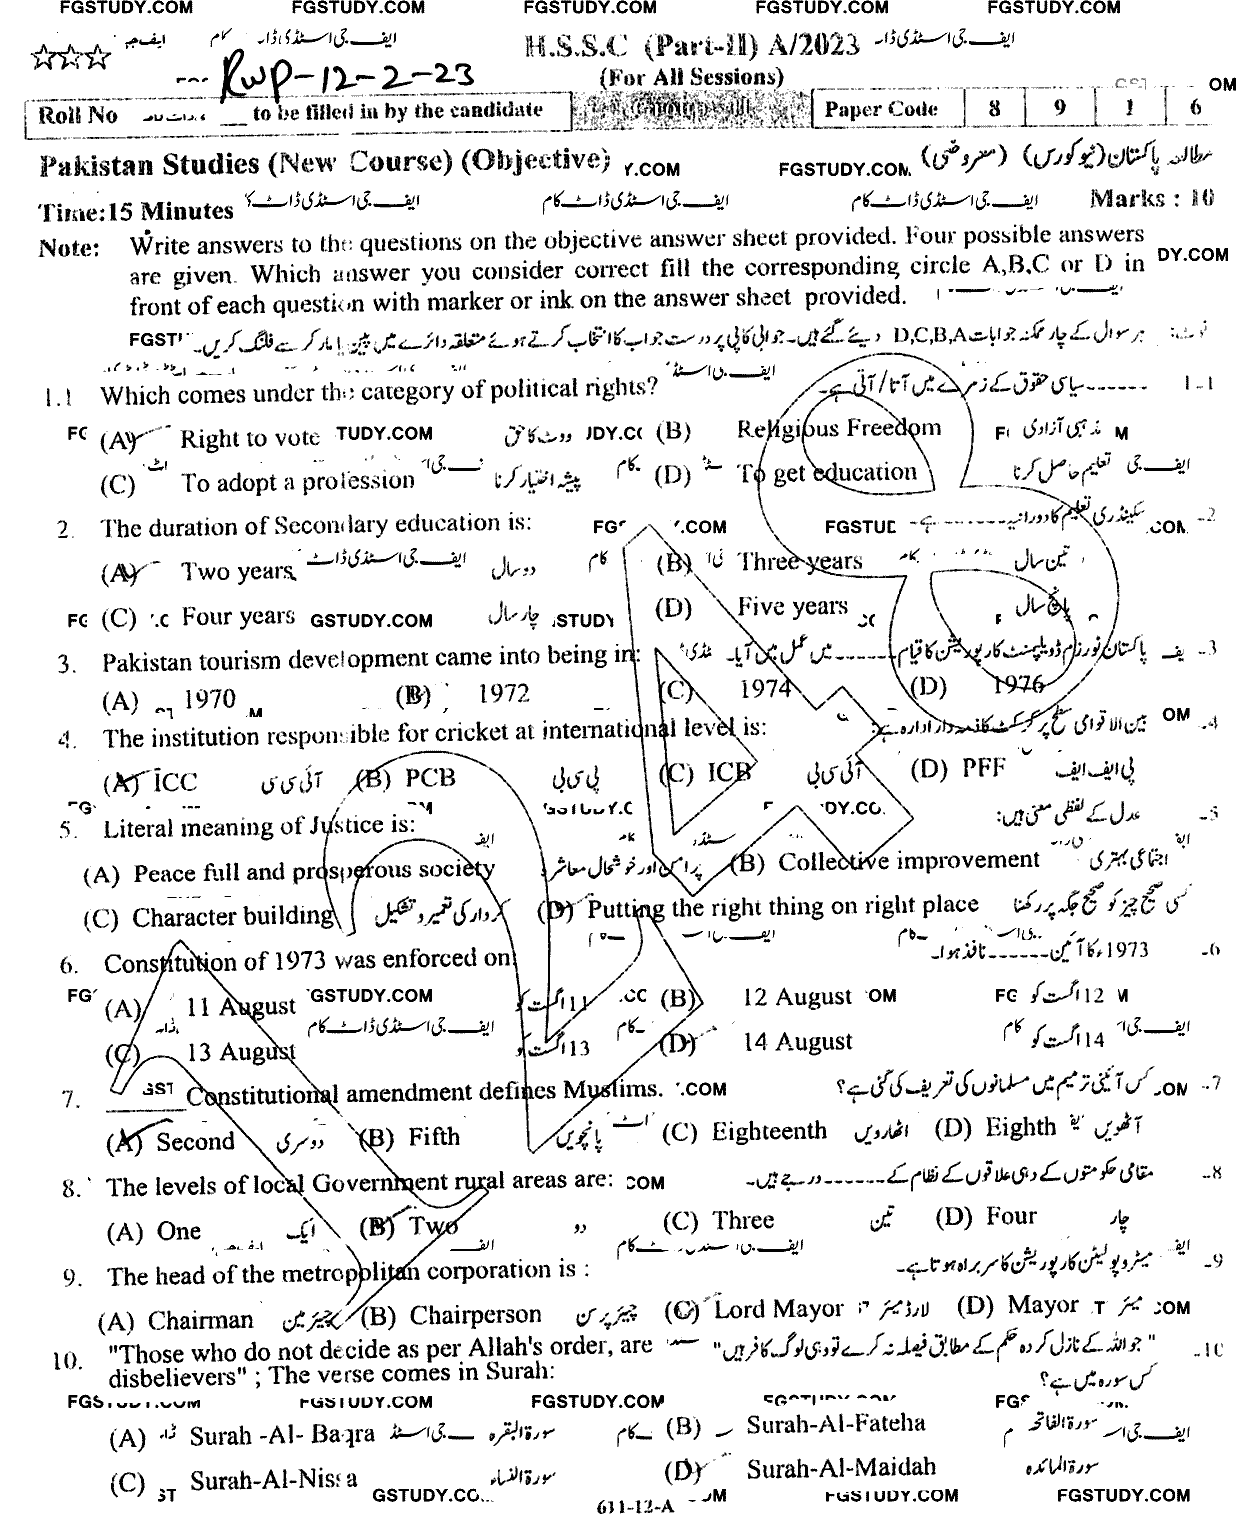 FGSTUDY.COM FGSTUDY.COM FGSTUDY.COM FGSTUDY.COM FGSTUDY.COM
H.S.S.C (Part-II) A/2023 ایف جی اسٹڈی ڈاٹ
RWP-12-2-23
(For All Sessions)
Roll No to be filled in by the candidate Paper Code 8 9 1 6
Pakistan Studies (New Course) (Objective) Y.COM FGSTUDY.COM مطالعہ پاکستان (نیو کورس) (معروضی)
Time:15 Minutes ایف جی اسٹڈی ڈاٹ ایف جی اسٹڈی ڈاٹ کام ایف جی اسٹڈی ڈاٹ کام Marks : 10
Note: Write answers to the questions on the objective answer sheet provided. Four possible answers
are given. Which answer you consider correct fill the corresponding circle A,B,C or D in DY.COM
front of each question with marker or ink on the answer sheet provided.
نوٹ: ہر سوال کے چار ممکنہ جوابات D,C,B,A دیئے گئے ہیں۔ جوابی کاپی پر درست جواب کا انتخاب کرتے ہوئے متعلقہ دائرے میں پین یا مارکر سے فلنگ کریں۔
1.1 Which comes under the category of political rights? 1-1 ------سیاسی حقوق کے زمرے میں آتا/آتی ہے۔
(A) Right to vote TUDY.COM ووٹ کا حق (B) Religious Freedom مذہبی آزادی
(C) To adopt a profession پیشہ اختیار کرنا (D) To get education تعلیم حاصل کرنا
2. The duration of Secondary education is: 2- سیکنڈری تعلیم کا دورانیہ ------ ہے۔
(A) Two years دو سال (B) Three years تین سال
(C) Four years GSTUDY.COM چار سال (D) Five years پانچ سال
3. Pakistan tourism development came into being in: 3- پاکستان ٹورزم ڈویلپمنٹ کارپوریشن کا قیام------میں عمل میں آیا۔
(A) 1970 (B) 1972 (C) 1974 (D) 1976
4. The institution responsible for cricket at international level is: 4- بین الاقوامی سطح پر کرکٹ کا ذمہ دار ادارہ ہے:
(A) ICC آئی سی سی (B) PCB پی سی بی (C) ICB آئی سی بی (D) PFF پی ایف ایف
5. Literal meaning of Justice is: 5- عدل کے لفظی معنی ہیں:
(A) Peace full and prosperous society پرامن اور خوشحال معاشرہ (B) Collective improvement اجتماعی بہتری
(C) Character building کردار کی تعمیر و تشکیل (D) Putting the right thing on right place کسی صحیح چیز کو صحیح جگہ پر رکھنا
6. Constitution of 1973 was enforced on: 6- 1973ء کا آئین------نافذ ہوا۔
(A) 11 August GSTUDY.COM 11 اگست کو (B) 12 August 12 اگست کو
(C) 13 August 13 اگست کو (D) 14 August 14 اگست کو
7. ______ Constitutional amendment defines Muslims. 7- کس آئینی ترمیم میں مسلمانوں کی تعریف کی گئی ہے؟
(A) Second دوسری (B) Fifth پانچویں (C) Eighteenth اٹھارویں (D) Eighth آٹھویں
8. The levels of local Government rural areas are: 8- مقامی حکومتوں کے دیہی علاقوں کے نظام کے------درجے ہیں۔
(A) One ایک (B) Two دو (C) Three تین (D) Four چار
9. The head of the metropolitan corporation is : 9- میٹروپولیٹن کارپوریشن کا سربراہ ہوتا ہے۔
(A) Chairman چیئرمین (B) Chairperson چیئرپرسن (C) Lord Mayor لارڈ میئر (D) Mayor میئر
10. "Those who do not decide as per Allah's order, are 10- "جو اللہ کے نازل کردہ حکم کے مطابق فیصلہ نہ کرے تو وہی لوگ کافر ہیں"
disbelievers" ; The verse comes in Surah: کس سورہ میں ہے؟
(A) Surah -Al- Baqra سورۃ البقرہ (B) Surah-Al-Fateha سورۃ الفاتحہ
(C) Surah-Al-Nissa سورۃ النساء (D) Surah-Al-Maidah سورۃ المائدہ
611-12-A FGSTUDY.COM FGSTUDY.COM